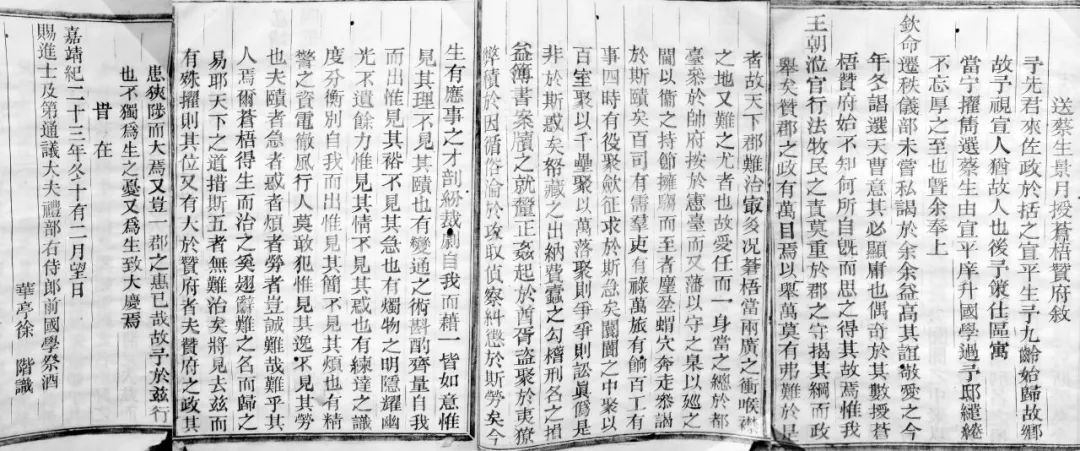 送蔡生景月授蒼梧贊府敘
予先君來佐政於括之宣平生予九齡始歸故鄉
故予視宣人猶故人也後予策仕區寓
當宁擢雋選蔡生由宣平庠升國學過予邸繾綣
不忘厚之至也暨余奉上
欽命遷秩儀部未嘗私謁於余余益高其誼敬愛之今
年冬謁選天曹意其必顯庸也偶奇於其數授蒼
梧贊府始不知何所自旣而思之得其故焉惟我
王朝涖官行法牧民之責莫重於郡之守揭其綱而政
舉矣贊郡之政有萬目焉以舉萬莫有弗難於是
者故天下郡難治冣多况蒼梧當兩廣之衝喉襟
之地又難之尤者也故愛任而一身當之總於都
臺枲於帥府按於憲臺而又藩以守之臬以廵之
閫以衞之持節擁麾而至者塵坌蝟穴奔走叅謁
於斯賾矣百司有需羣吏有祿萬旅有餉百工有
事四時有役聚歛征求於斯急矣闤闠之中聚以
百室聚以千壘聚以萬落聚則爭爭則訟眞僞是
非於斯惑矣帑藏之出納費蠹之勾稽刑名之損
益簿書案牘之就釐正姦起於酋胥盜聚於夷獠
弊積於因循俗淪於攻取偵察糾慝於斯勞矣今
生有應事之才剖紛裁劇自我而藉一皆如意惟
見其理不見其賾也有變通之術斟酌齊量自我
而出惟見其裕不見其急也有燭物之明隱耀幽
光不遺餘力惟見其情不見其惑也有練達之識
度分衡別自我而出惟見其簡不見其煩也有精
警之資電徹風行人莫敢犯惟見其逸不見其勞
也夫賾者急者惑者煩者勞者豈誠難哉難乎其
人焉爾蒼梧得生而治之奚翅釂難之名而歸之
易耶天下之道措斯五者無難治矣將見去茲而
有殊擢則其位又有大於贊府者夫贊府之政其
患狹陟而大焉又豈一郡之慝已哉故予於茲行
也不獨爲生之憂又爲生致大慶焉
昔 在
嘉靖紀二十三年冬十有二月望日
賜進士及第通議大夫禮部右侍郎前國學祭酒
華亭徐 階識